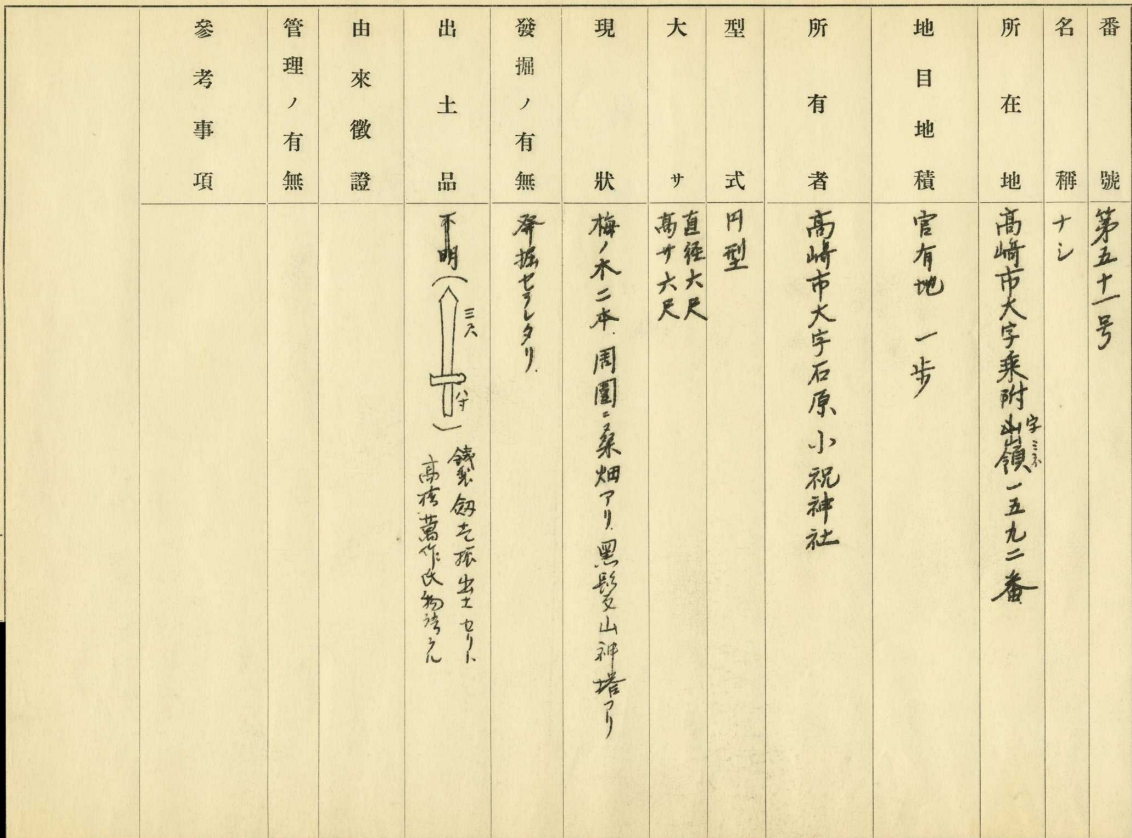 番號
第五十一号
名稱
ナシ
所在地
高崎市大字乗附字山嶺一五九二番
ミネ
地目地積
官有地 一歩
所有者
高崎市大字石原小祝神社
型式
円型
大サ
直径六尺
高サ六尺
現狀
梅ノ木二本、周圍ニ桑畑アリ、黒髪山神塔アリ
發掘ノ有無
発掘セラレタリ、
出土品
不明（
三尺
八寸
）
鉄製剱壱振出土セリト
高橋萬作氏物語ル
由來徴證
管理ノ有無
參考事項